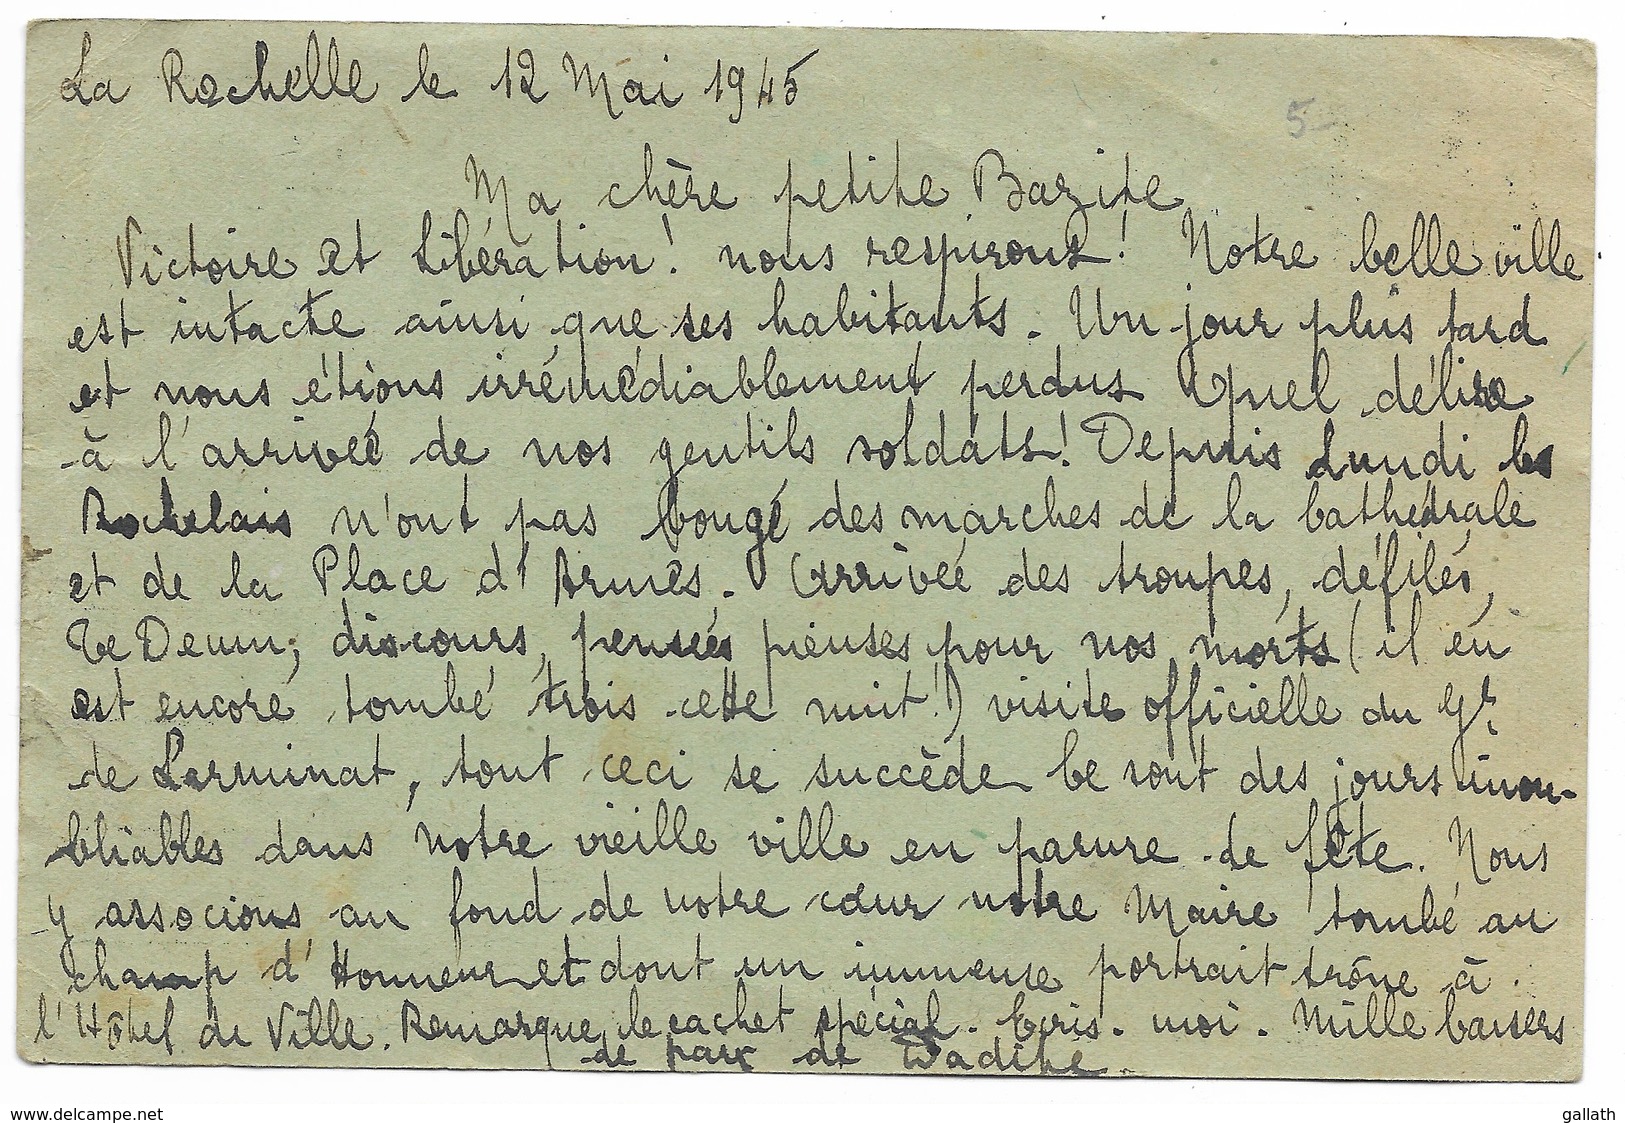 La Rochelle le 12 Mai 1945
5-
Ma chère petite Bazite
Victoire et Libération! nous respirons! Notre belle ville
est intacte ainsi que ses habitants. Un jour plus tard
et nous étions irrémédiablement perdus Quel délire
à l'arrivée de nos gentils soldats! Depuis Lundi les
Rochelais n'ont pas bougé des marches de la Cathédrale
et de la Place d'Armes. Arrivée des troupes, défilés,
Te Deum, discours, pensées pieuses pour nos morts (il en
est encore tombé trois cette nuit!) visite officielle du Gr.
de Larminat, tout ceci se succède Ce sont des jours inou-
bliables dans notre vieille ville en parure de fête. Nous
y associons au fond de notre cœur notre Maire tombé au
champ d'Honneur et dont un immense portrait trône à
l'Hôtel de Ville. Remarque le cachet spécial. Ecris-moi. Mille baisers
de paix de Dadite.
www.delcampe.net
gallath